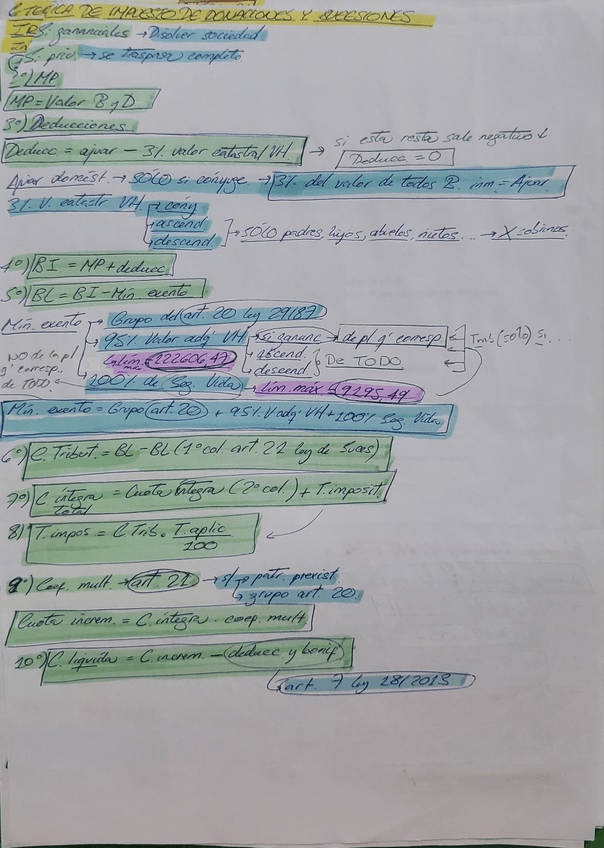 TEÓRICA DE IMPUESTO DE DONACIONES Y SUCESIONES
Si gananciales → Disolver sociedad
Si priv. → se traspasa completo.
2º) MP
MP = Valor B y D
3º) Deducciones
Deducc = ajuar - 3% valor catastral VH → si esta resta sale negativo ↓
Deducc = 0
Ajuar domést. → SÓLO si cónyuge → 3% del valor de todos B. inm = Ajuar.
3% V. catastr VH → cóny
ascend
descend } → SÓLO padres, hijos, abuelos, nietos... → X sobinos
4º) BI = MP + deducc
5º) BL = BI - Mín. exento
Mín. exento → Grupo del art. 20 ley 29/87
95% Valor adq VH → si gananc → de pl q' corresp Tmb (50%) si...
Lím. máx 122606,47 → ascend. descend } De TODO
NO de la pl q' corresp., de TODO.
100% de Seg. Vida → lím. máx 9195,49
Mín. exento = Grupo art. 20 + 95% V adq VH + 100% Seg. Vida
6º) C. Tribut. = BL - BL (1º col. art. 21 ley de Suces)
7º) C íntegra total = Cuota íntegra (2º col.) + T. imposit
8) T. impos = C. Trib. · T. aplic / 100
9º) Coef. mult. → art. 22 → s/ → patr. prexist.
→ grupo art. 20.
Cuota increm. = C. íntegra · coef. mult
10º) C. líquida = C. increm. - deducc y bonif
art. 7 ley 28/2013